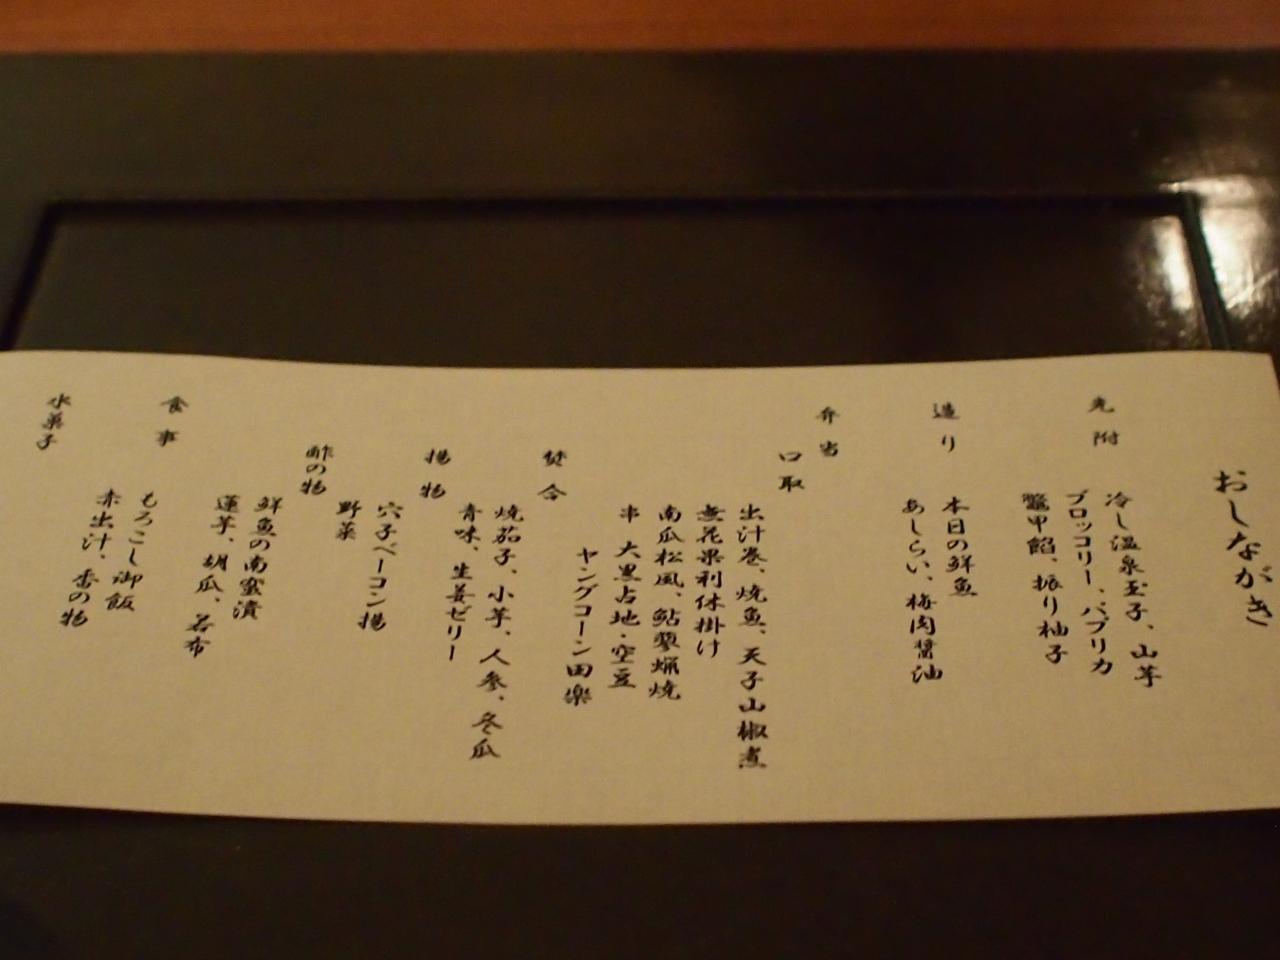 おしながき
先附
冷し温泉玉子、山芋
ブロッコリー、パプリカ
鼈甲餡、振り柚子
造り
本日の鮮魚
あしらい、梅肉醤油
弁当
口取
出汁巻、焼魚、天子山椒煮
無花果利休掛け
南瓜松風、鮎蓼蝋焼
串 大黒占地・空豆
ヤングコーン田楽
焚合
焼茄子、小芋、人参、冬瓜
青味、生姜ゼリー
揚物
穴子ベーコン揚
野菜
酢の物
鮮魚の南蛮漬
蓮芋、胡瓜、若布
食事
もろこし御飯
赤出汁、香の物
水菓子